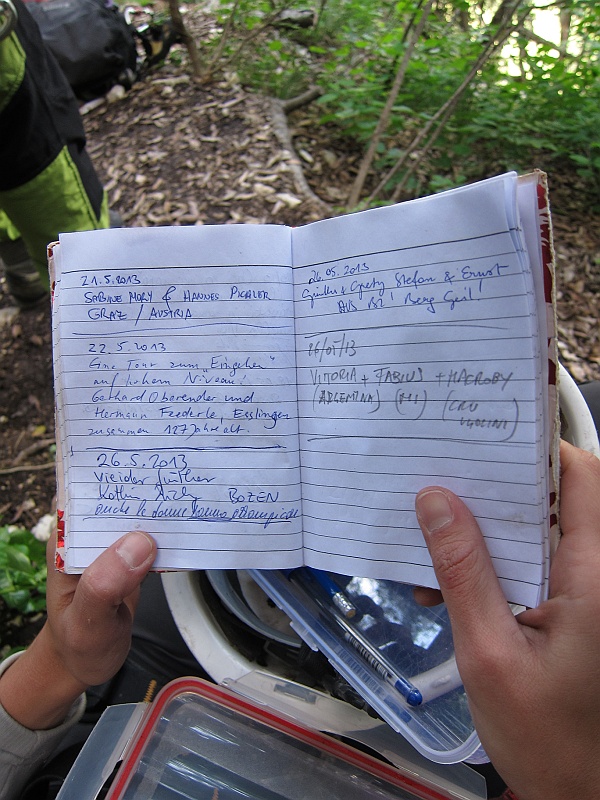 21.5.2013
SABINE MORY & HANNES PICHLER
GRAZ / AUSTRIA
22.5.2013
Eine Tour zum „Eingehen"
auf hohem Niveau!
Gebhard Oberender und
Hermann Faederle, Esslingen
zusammen 127 Jahre alt.
26.5.2013
Vieider Günther
BOZEN
anche le donne
26.05.2013
Günther & Grety Stefan & Ernst
AUS BZ! Berg Geil!
26/05/13
VITTORIA + FABIUS + MACROBY
(ARGEMINA) (MI) (CRU
UGOLINI)